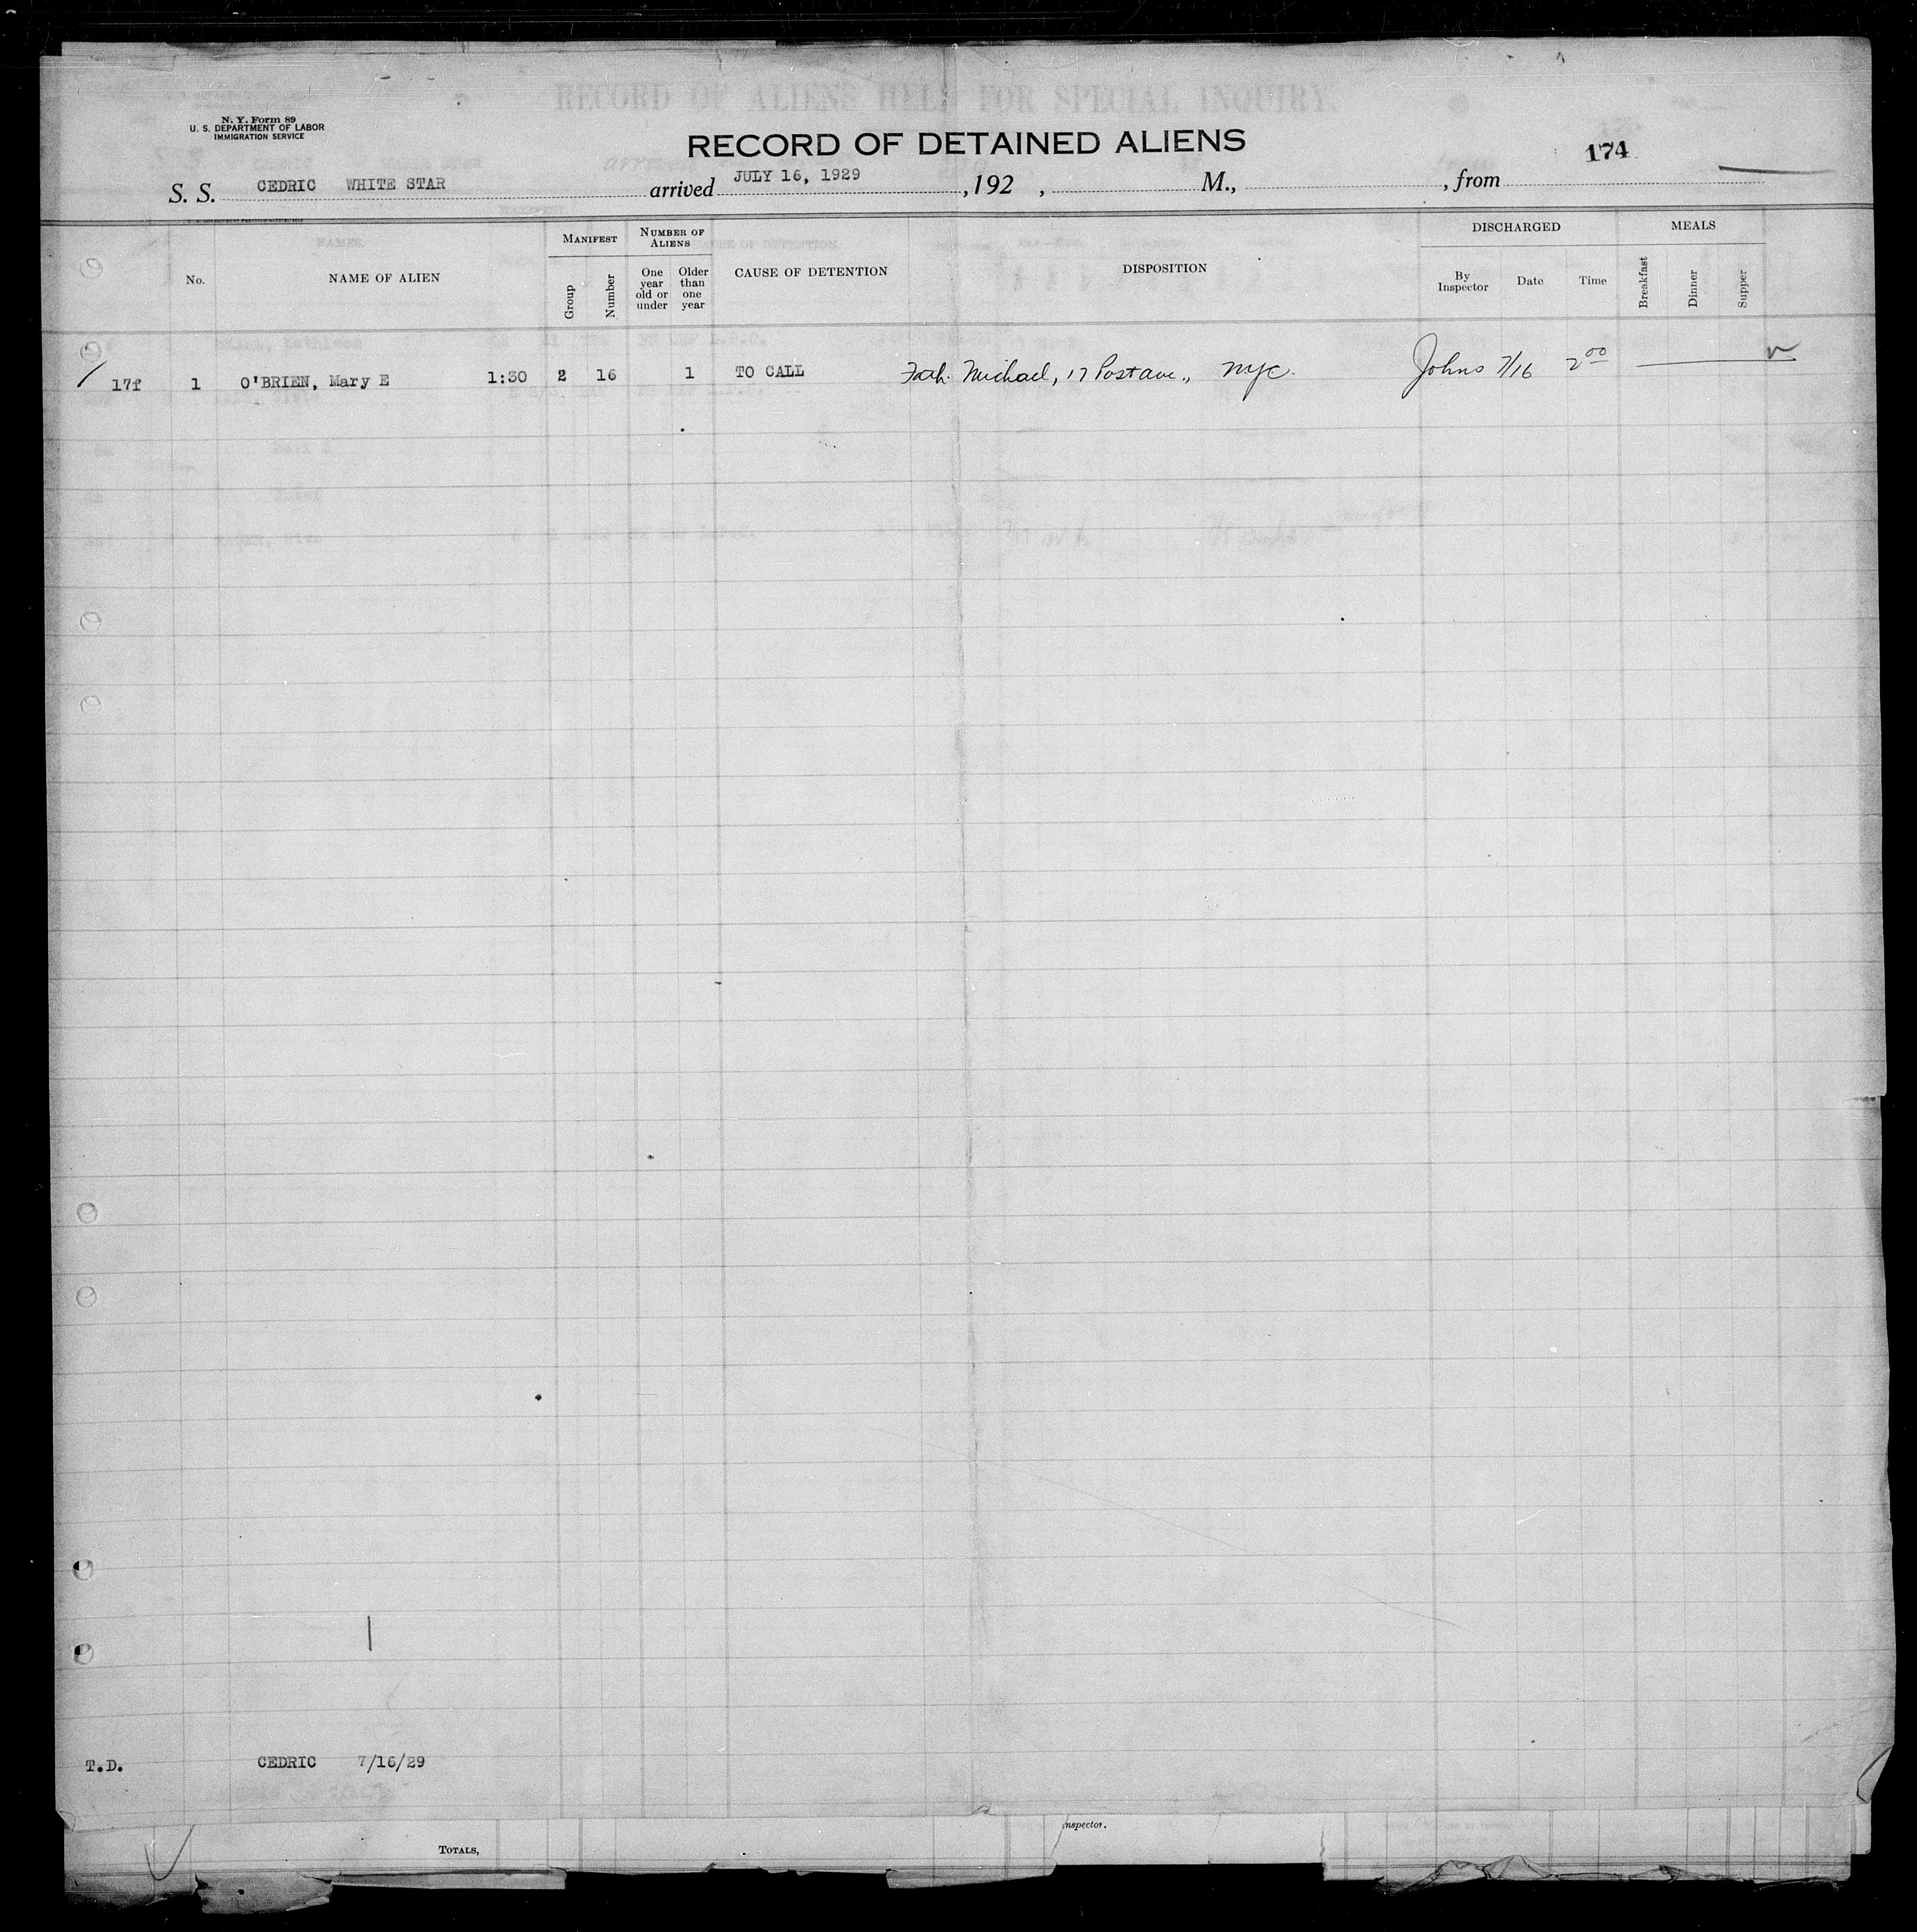 N. Y. Form 89
U. S. DEPARTMENT OF LABOR
IMMIGRATION SERVICE
RECORD OF ALIENS HELD FOR SPECIAL INQUIRY.
RECORD OF DETAINED ALIENS
174
S. S. CEDRIC WHITE STAR arrived JULY 16, 1929 , 192 , M., , from
No.
NAME OF ALIEN
MANIFEST
Group
Number
NUMBER OF ALIENS
One year old or under
Older than one year
CAUSE OF DETENTION
DISPOSITION
DISCHARGED
By Inspector
Date
Time
MEALS
Breakfast
Dinner
Supper
17f 1 O'BRIEN, Mary E 1:30 2 16 1 TO CALL Fath. Michael, 17 Post ave., NYC. Johns 7/16 2 00
T.D. CEDRIC 7/16/29
TOTALS,
nspector.